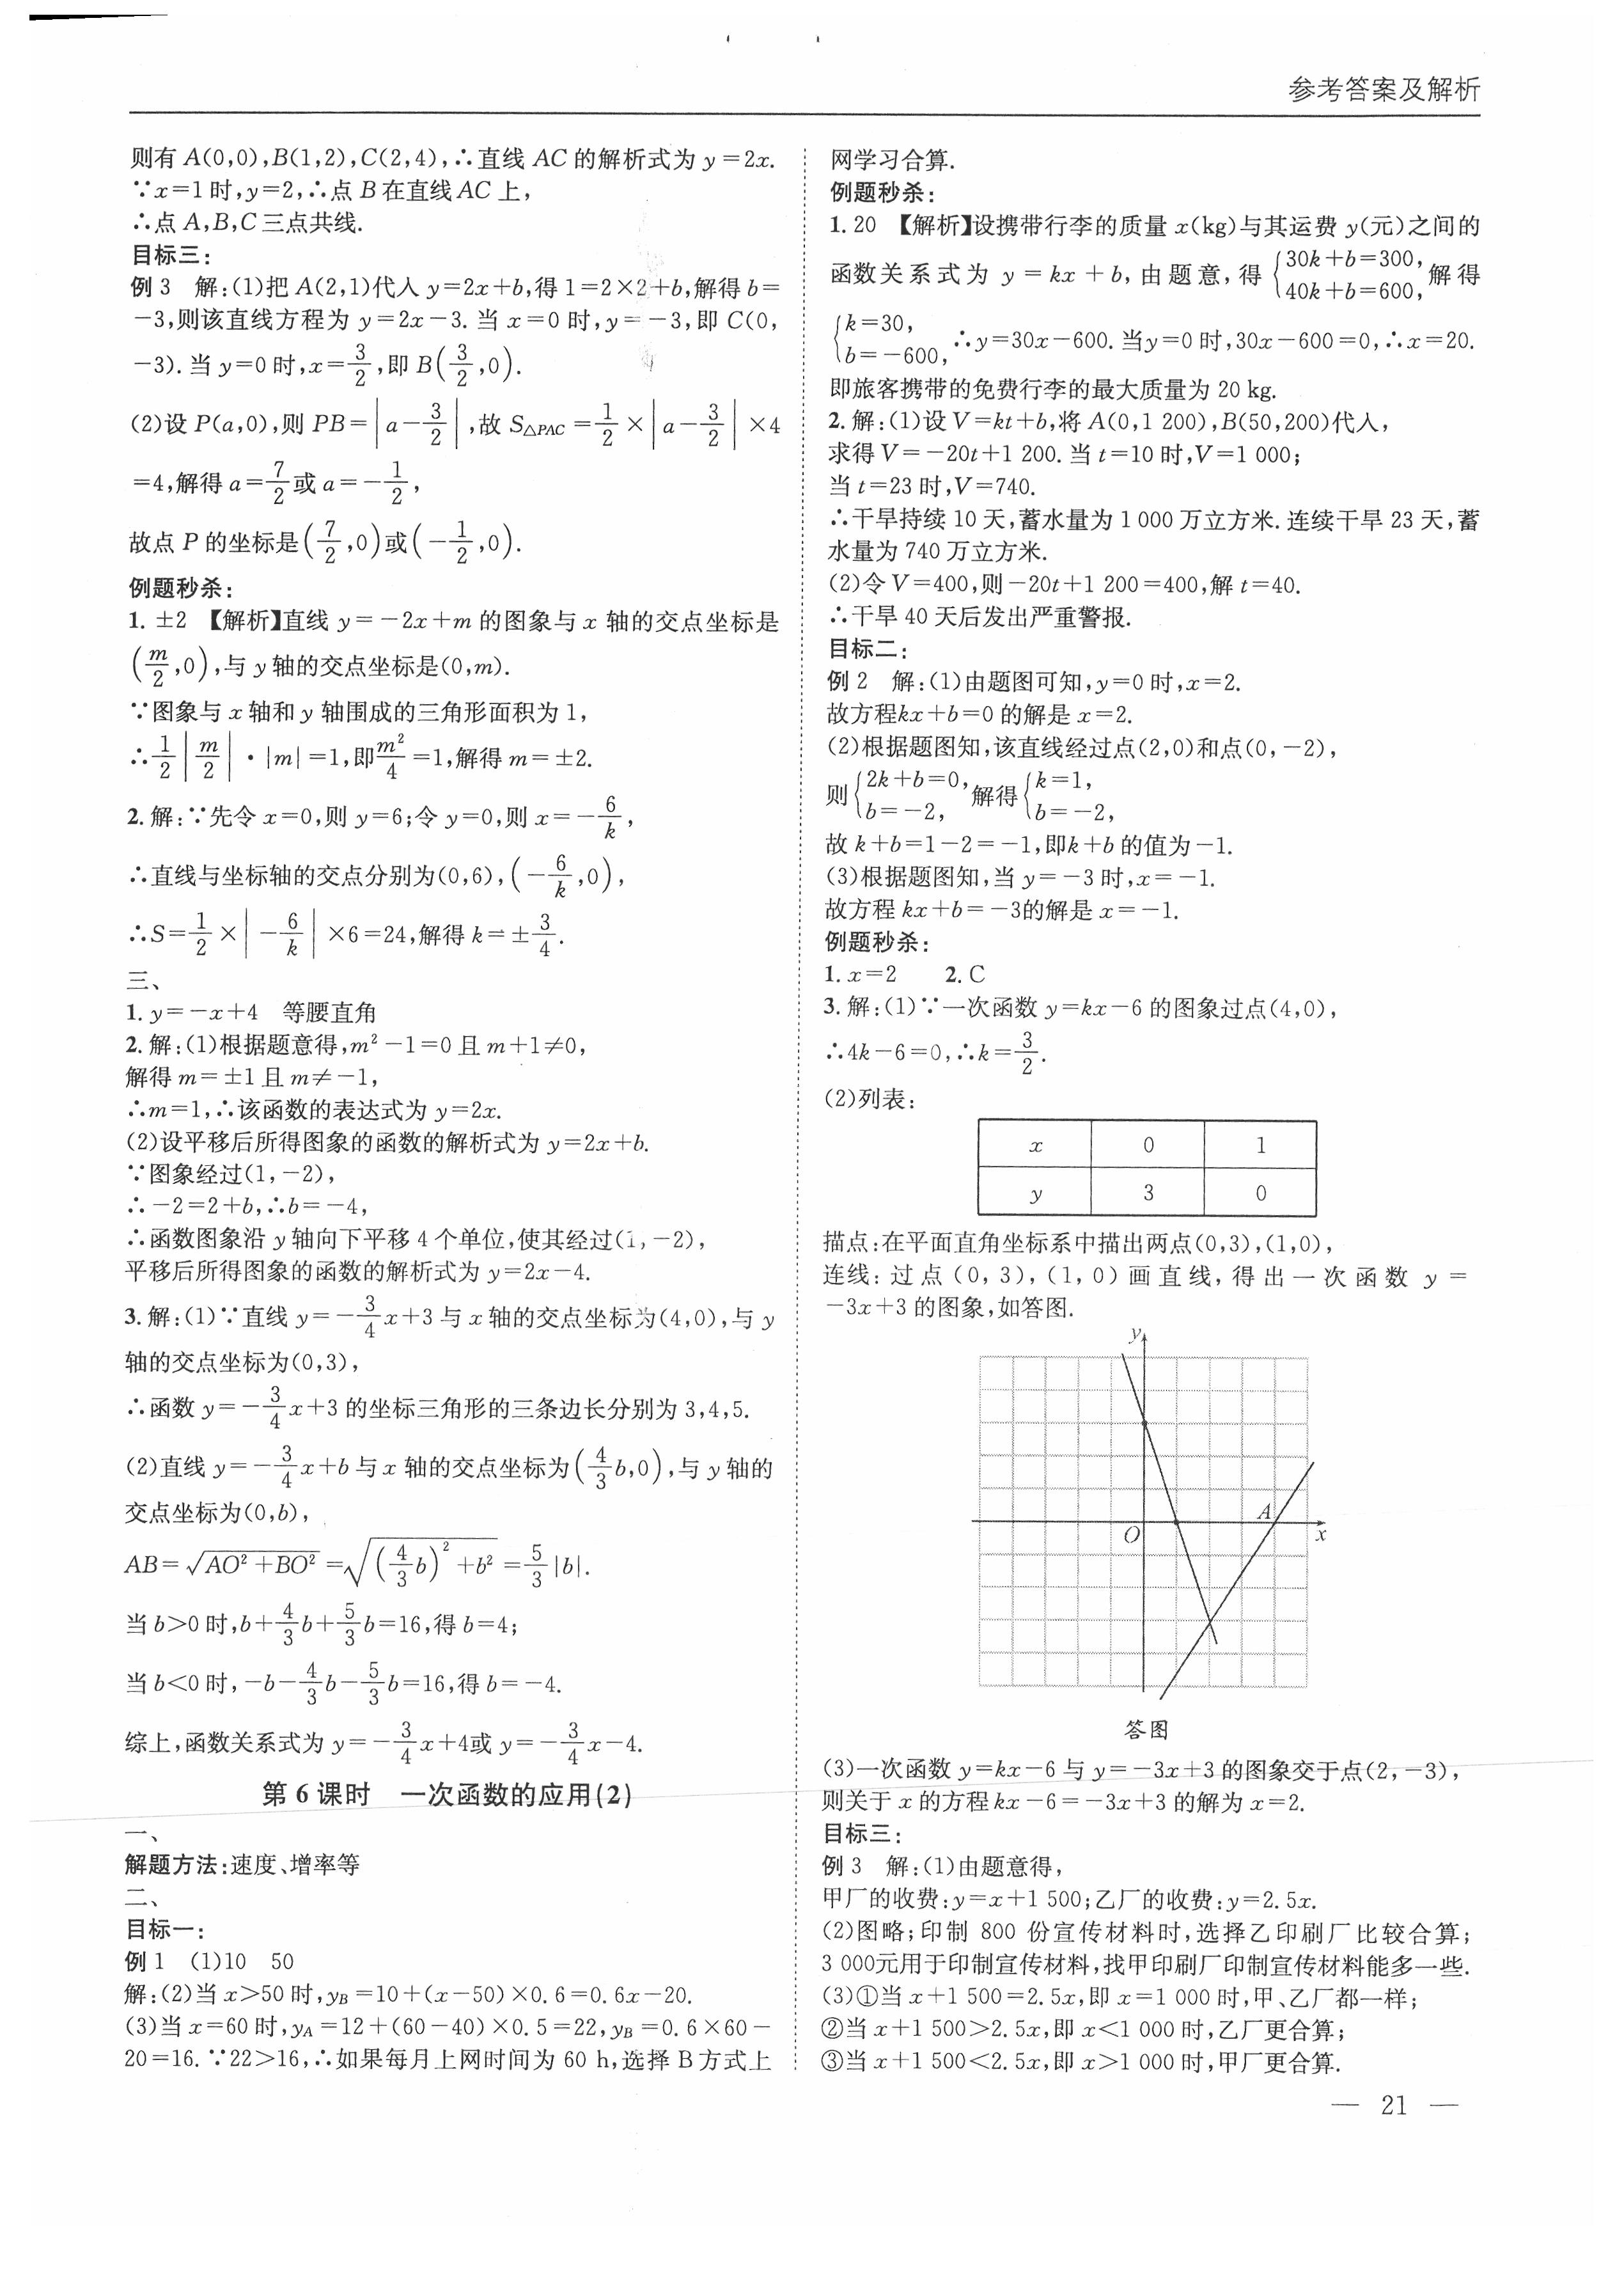 参考答案及解析
则有 A(0,0),B(1,2),C(2,4),∴直线 AC 的解析式为 y=2x.
∵x=1时,y=2,∴点 B 在直线 AC 上,
∴点 A,B,C 三点共线.
目标三:
例 3 解:(1)把 A(2,1)代入 y=2x+b,得 1=2×2+b,解得 b=
-3,则该直线方程为 y=2x-3. 当 x=0 时,y=-3,即 C(0,
-3). 当 y=0 时,x=3/2,即 B(3/2,0).
(2)设 P(a,0),则 PB=|a-3/2|,故 S△PAC=1/2×|a-3/2|×4
=4,解得 a=7/2或 a=-1/2,
故点 P 的坐标是(7/2,0)或(-1/2,0).
例题秒杀:
1. ±2 【解析】直线 y=-2x+m 的图象与 x 轴的交点坐标是
(m/2,0),与 y 轴的交点坐标是(0,m).
∵图象与 x 轴和 y 轴围成的三角形面积为 1,
∴1/2|m/2|·|m|=1,即m²/4=1,解得 m=±2.
2. 解:∵先令 x=0,则 y=6;令 y=0,则 x=-6/k,
∴直线与坐标轴的交点分别为(0,6),(-6/k,0),
∴S=1/2×|-6/k|×6=24,解得 k=±3/4.
三、
1. y=-x+4 等腰直角
2. 解:(1)根据题意得,m²-1=0 且 m+1≠0,
解得 m=±1 且 m≠-1,
∴m=1,∴该函数的表达式为 y=2x.
(2)设平移后所得图象的函数的解析式为 y=2x+b.
∵图象经过(1,-2),
∴-2=2+b,∴b=-4,
∴函数图象沿 y 轴向下平移 4 个单位,使其经过(1,-2),
平移后所得图象的函数的解析式为 y=2x-4.
3. 解:(1)∵直线 y=-3/4x+3 与 x 轴的交点坐标为(4,0),与 y
轴的交点坐标为(0,3),
∴函数 y=-3/4x+3 的坐标三角形的三条边长分别为 3,4,5.
(2)直线 y=-3/4x+b 与 x 轴的交点坐标为(4/3b,0),与 y 轴的
交点坐标为(0,b),
AB=√(AO²+BO²)=√((4/3b)²+b²)=5/3|b|.
当 b>0 时,b+4/3b+5/3b=16,得 b=4;
当 b<0 时,-b-4/3b-5/3b=16,得 b=-4.
综上,函数关系式为 y=-3/4x+4或 y=-3/4x-4.
第 6 课时 一次函数的应用(2)
一、
解题方法:速度、增率等
二、
目标一:
例 1 (1)10 50
解:(2)当 x>50 时,yB=10+(x-50)×0.6=0.6x-20.
(3)当 x=60 时,yA=12+(60-40)×0.5=22,yB=0.6×60-
20=16. ∵22>16,∴如果每月上网时间为 60 h,选择 B 方式上
网学习合算.
例题秒杀:
1. 20 【解析】设携带行李的质量 x(kg)与其运费 y(元)之间的
函数关系式为 y=kx+b,由题意,得{30k+b=300, 40k+b=600,解得
{k=30, b=-600,∴y=30x-600. 当y=0 时,30x-600=0,∴x=20.
即旅客携带的免费行李的最大质量为 20 kg.
2. 解:(1)设 V=kt+b,将 A(0,1 200),B(50,200)代入,
求得 V=-20t+1 200. 当 t=10 时,V=1 000;
当 t=23 时,V=740.
∴干旱持续 10 天,蓄水量为 1 000 万立方米. 连续干旱 23 天,蓄
水量为 740 万立方米.
(2)令 V=400,则-20t+1 200=400,解 t=40.
∴干旱 40 天后发出严重警报.
目标二:
例 2 解:(1)由题图可知,y=0 时,x=2.
故方程kx+b=0 的解是 x=2.
(2)根据题图知,该直线经过点(2,0)和点(0,-2),
则{2k+b=0, b=-2,解得{k=1, b=-2,
故 k+b=1-2=-1,即k+b 的值为-1.
(3)根据题图知,当 y=-3 时,x=-1.
故方程 kx+b=-3的解是 x=-1.
例题秒杀:
1. x=2 2. C
3. 解:(1)∵一次函数 y=kx-6 的图象过点(4,0),
∴4k-6=0,∴k=3/2.
(2)列表:
x 0 1
y 3 0
描点:在平面直角坐标系中描出两点(0,3),(1,0),
连线:过点(0,3),(1,0)画直线,得出一次函数 y=
-3x+3 的图象,如答图.
y
A
O
x
答图
(3)一次函数 y=kx-6 与 y=-3x+3 的图象交于点(2,-3),
则关于 x 的方程 kx-6=-3x+3 的解为 x=2.
目标三:
例 3 解:(1)由题意得,
甲厂的收费:y=x+1 500;乙厂的收费:y=2.5x.
(2)图略;印制 800 份宣传材料时,选择乙印刷厂比较合算;
3 000元用于印制宣传材料,找甲印刷厂印制宣传材料能多一些.
(3)①当 x+1 500=2.5x,即 x=1 000 时,甲、乙厂都一样;
②当 x+1 500>2.5x,即 x<1 000 时,乙厂更合算;
③当 x+1 500<2.5x,即 x>1 000 时,甲厂更合算.
— 21 —